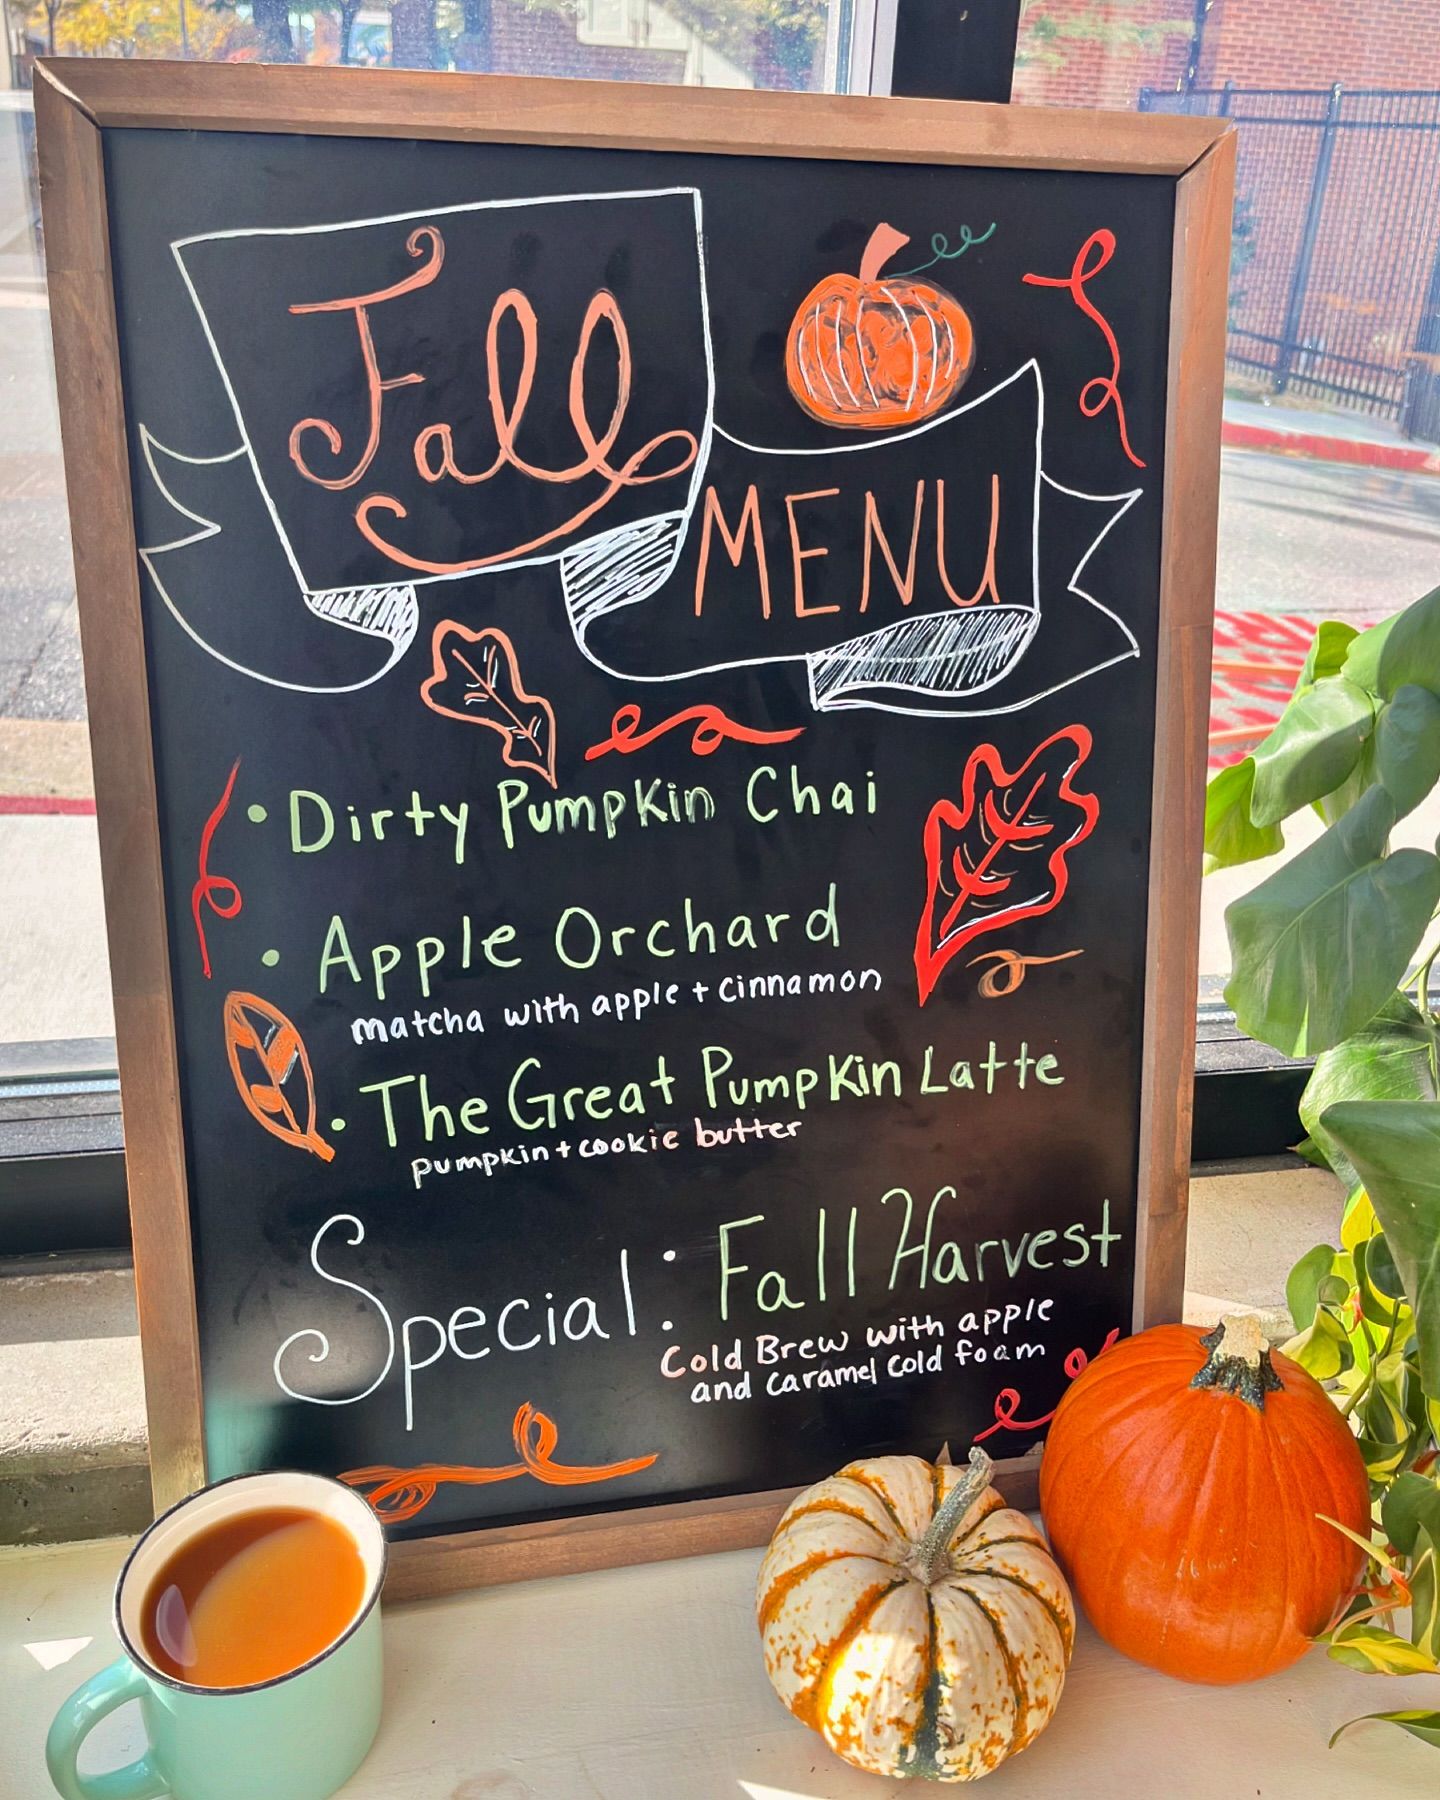 Fall
MENU
• Dirty Pumpkin Chai
• Apple Orchard
matcha with apple + cinnamon
• The Great Pumpkin Latte
pumpkin + cookie butter
Special: Fall Harvest
Cold Brew with apple
and caramel cold foam